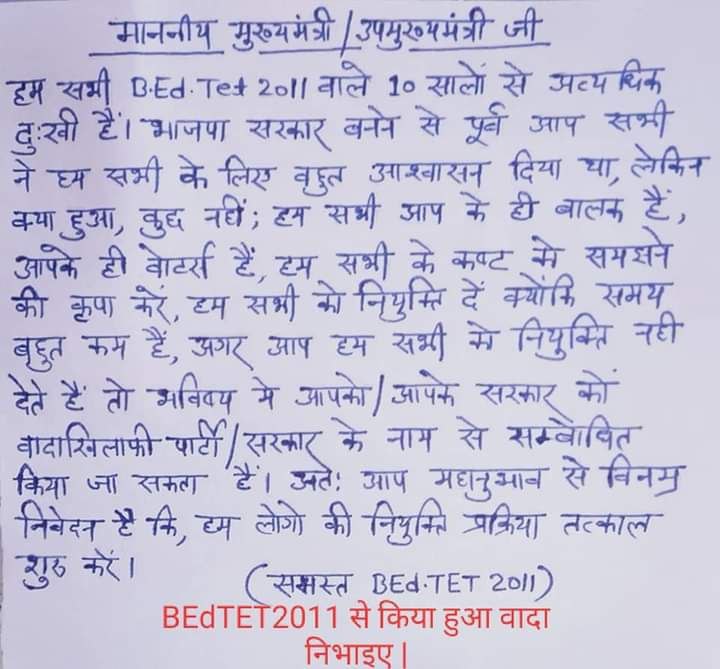 माननीय मुख्यमंत्री/उपमुख्यमंत्री जी
हम सभी B.Ed. Tet 2011 वाले 10 सालों से अत्यधिक
दुःखी हैं। भाजपा सरकार बनने से पूर्व आप सभी
ने हम सभी के लिए बहुत आश्वासन दिया था, लेकिन
क्या हुआ, कुछ नहीं; हम सभी आप के ही बालक हैं,
आपके ही वोटर्स हैं, हम सभी के कष्ट को समझने
की कृपा करें, हम सभी को नियुक्ति दें क्योंकि समय
बहुत कम हैं, अगर आप हम सभी को नियुक्ति नही
देते हैं तो भविष्य मे आपको/आपके सरकार को
वादाखिलाफी पार्टी/सरकार के नाम से सम्बोधित
किया जा सकता हैं। अतः आप महानुभाव से विनम्र
निवेदन है कि, हम लोगो की नियुक्ति प्रक्रिया तत्काल
शुरू करें।
(समस्त BEd.TET 2011)
BEdTET2011 से किया हुआ वादा
निभाइए |